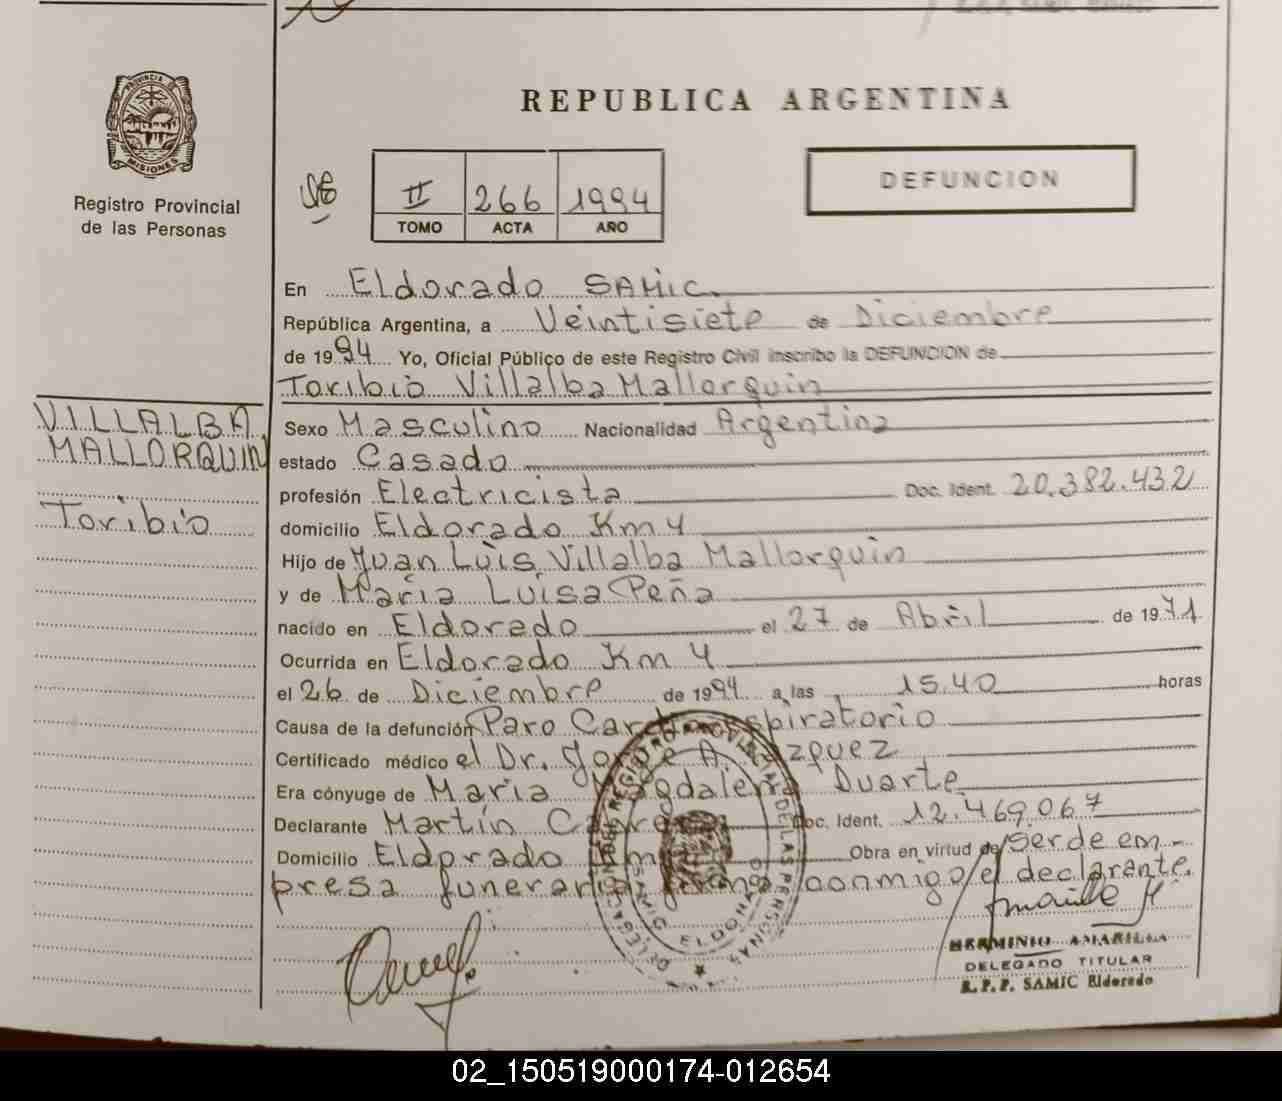 REPUBLICA ARGENTINA
PROVINCIA DE
MISIONES
Registro Provincial
de las Personas
II 266 1994
TOMO ACTA AÑO
DEFUNCION
En Eldorado SAMIC.
República Argentina, a Veintisiete de Diciembre
de 1994 Yo, Oficial Público de este Registro Civil inscribo la DEFUNCION de
Toribio Villalba Mallorquin
VILLALBA
MALLORQUIN
Toribio
Sexo Masculino Nacionalidad Argentina
estado Casado
profesión Electricista Doc. Ident. 20.382.432
domicilio Eldorado Km 4
Hijo de Juan Luis Villalba Mallorquin
y de María Luisa Peña
nacido en Eldorado el 27 de Abril de 1971
Ocurrida en Eldorado Km 4
el 26 de Diciembre de 1994 a las 15.40 horas
Causa de la defunción Paro Cardiorespiratorio
Certificado médico el Dr. A.
Era cónyuge de Maria Magdalena Duarte
Declarante Martín Doc. Ident. 12.469.067
Domicilio Eldorado Km Obra en virtud de ser de em-
presa funeraria firma conmigo el declarante.
REGISTRO PROVINCIAL DE LAS PERSONAS
SAMIC ELDORADO
HERMINIO AMARILLA
DELEGADO TITULAR
R.P.P. SAMIC Eldorado
02_150519000174-012654